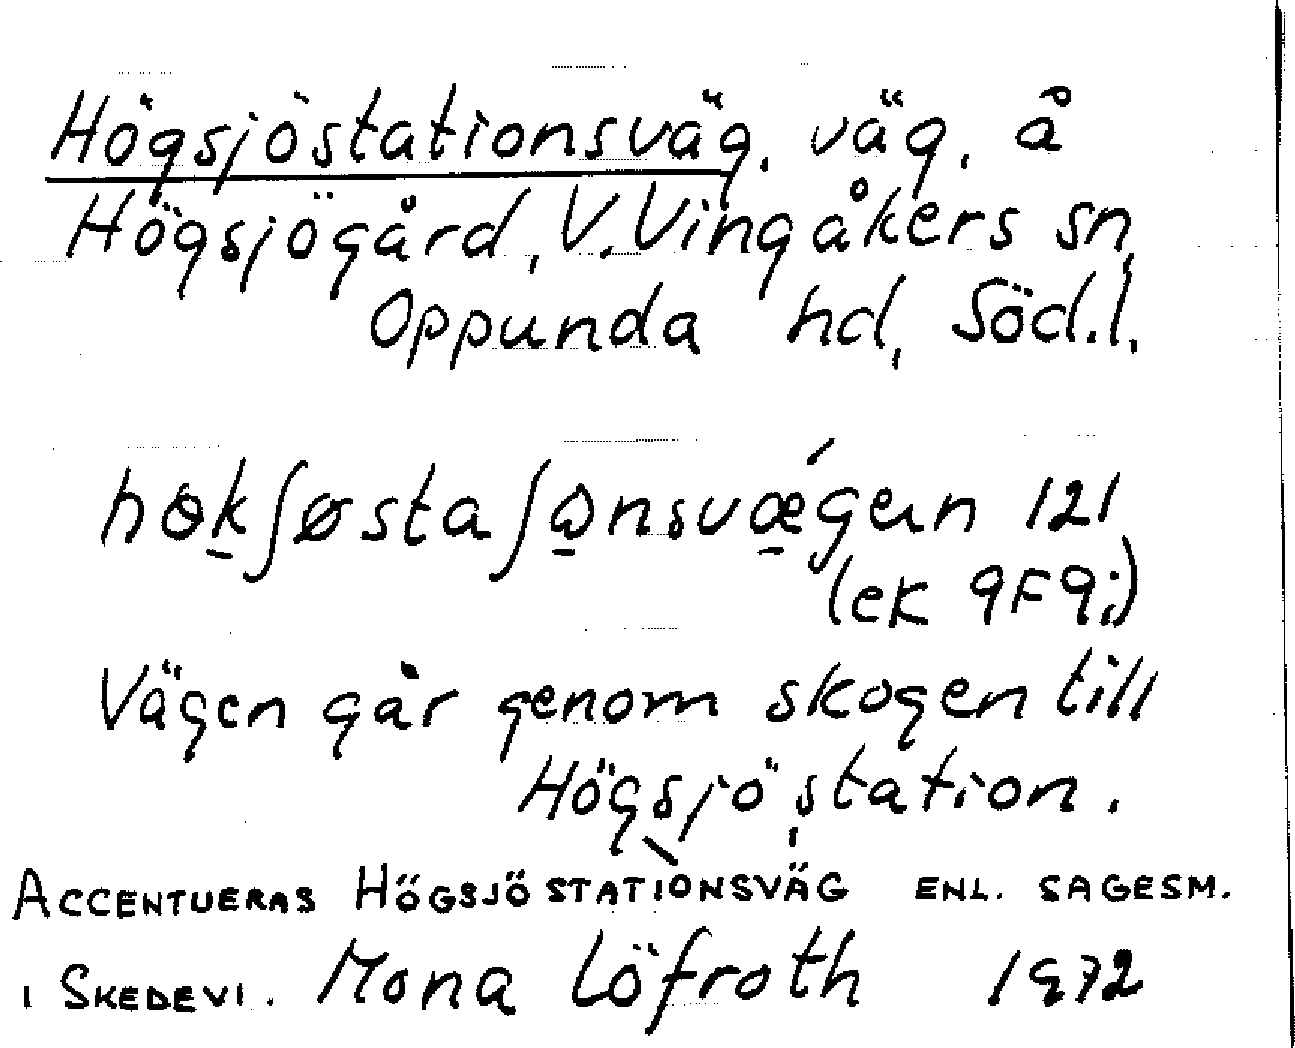 Högsjöstationsväg, väg, å
Högsjögård, V. Vingåkers sn,
Oppunda hd, Söd.l.
121
(ek 9F9i)
Vägen går genom skogen till
Högsjö station.
ACCENTUERAS HÖGSJÖSTATIONSVÄG ENL. SAGESM.
I SKEDEVI. Mona Löfroth 1972